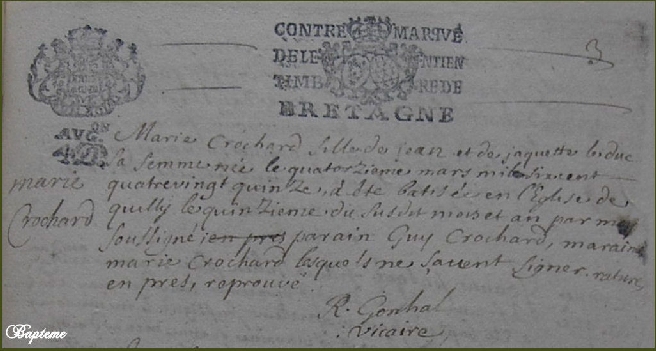 CONTRE MARQVE
DE LE NTIEN
TIMB RE DE
BRETAGNE
AVG.ON
3
Marie Crochard fille de jean et de jaquette leduc
sa femme née le quatorzième mars mil six cent
quatrevingt quinze, a été batisée en l'Eglise de
quilly le quinzieme du susdit mois et an par moy
soussigné en pres parain Guy Crochard, maraine
marie Crochard lesquels ne savent signer, rature,
en pres, reprouvé.
marie
Crochard
R. Gonhal
vicaire
Bapteme